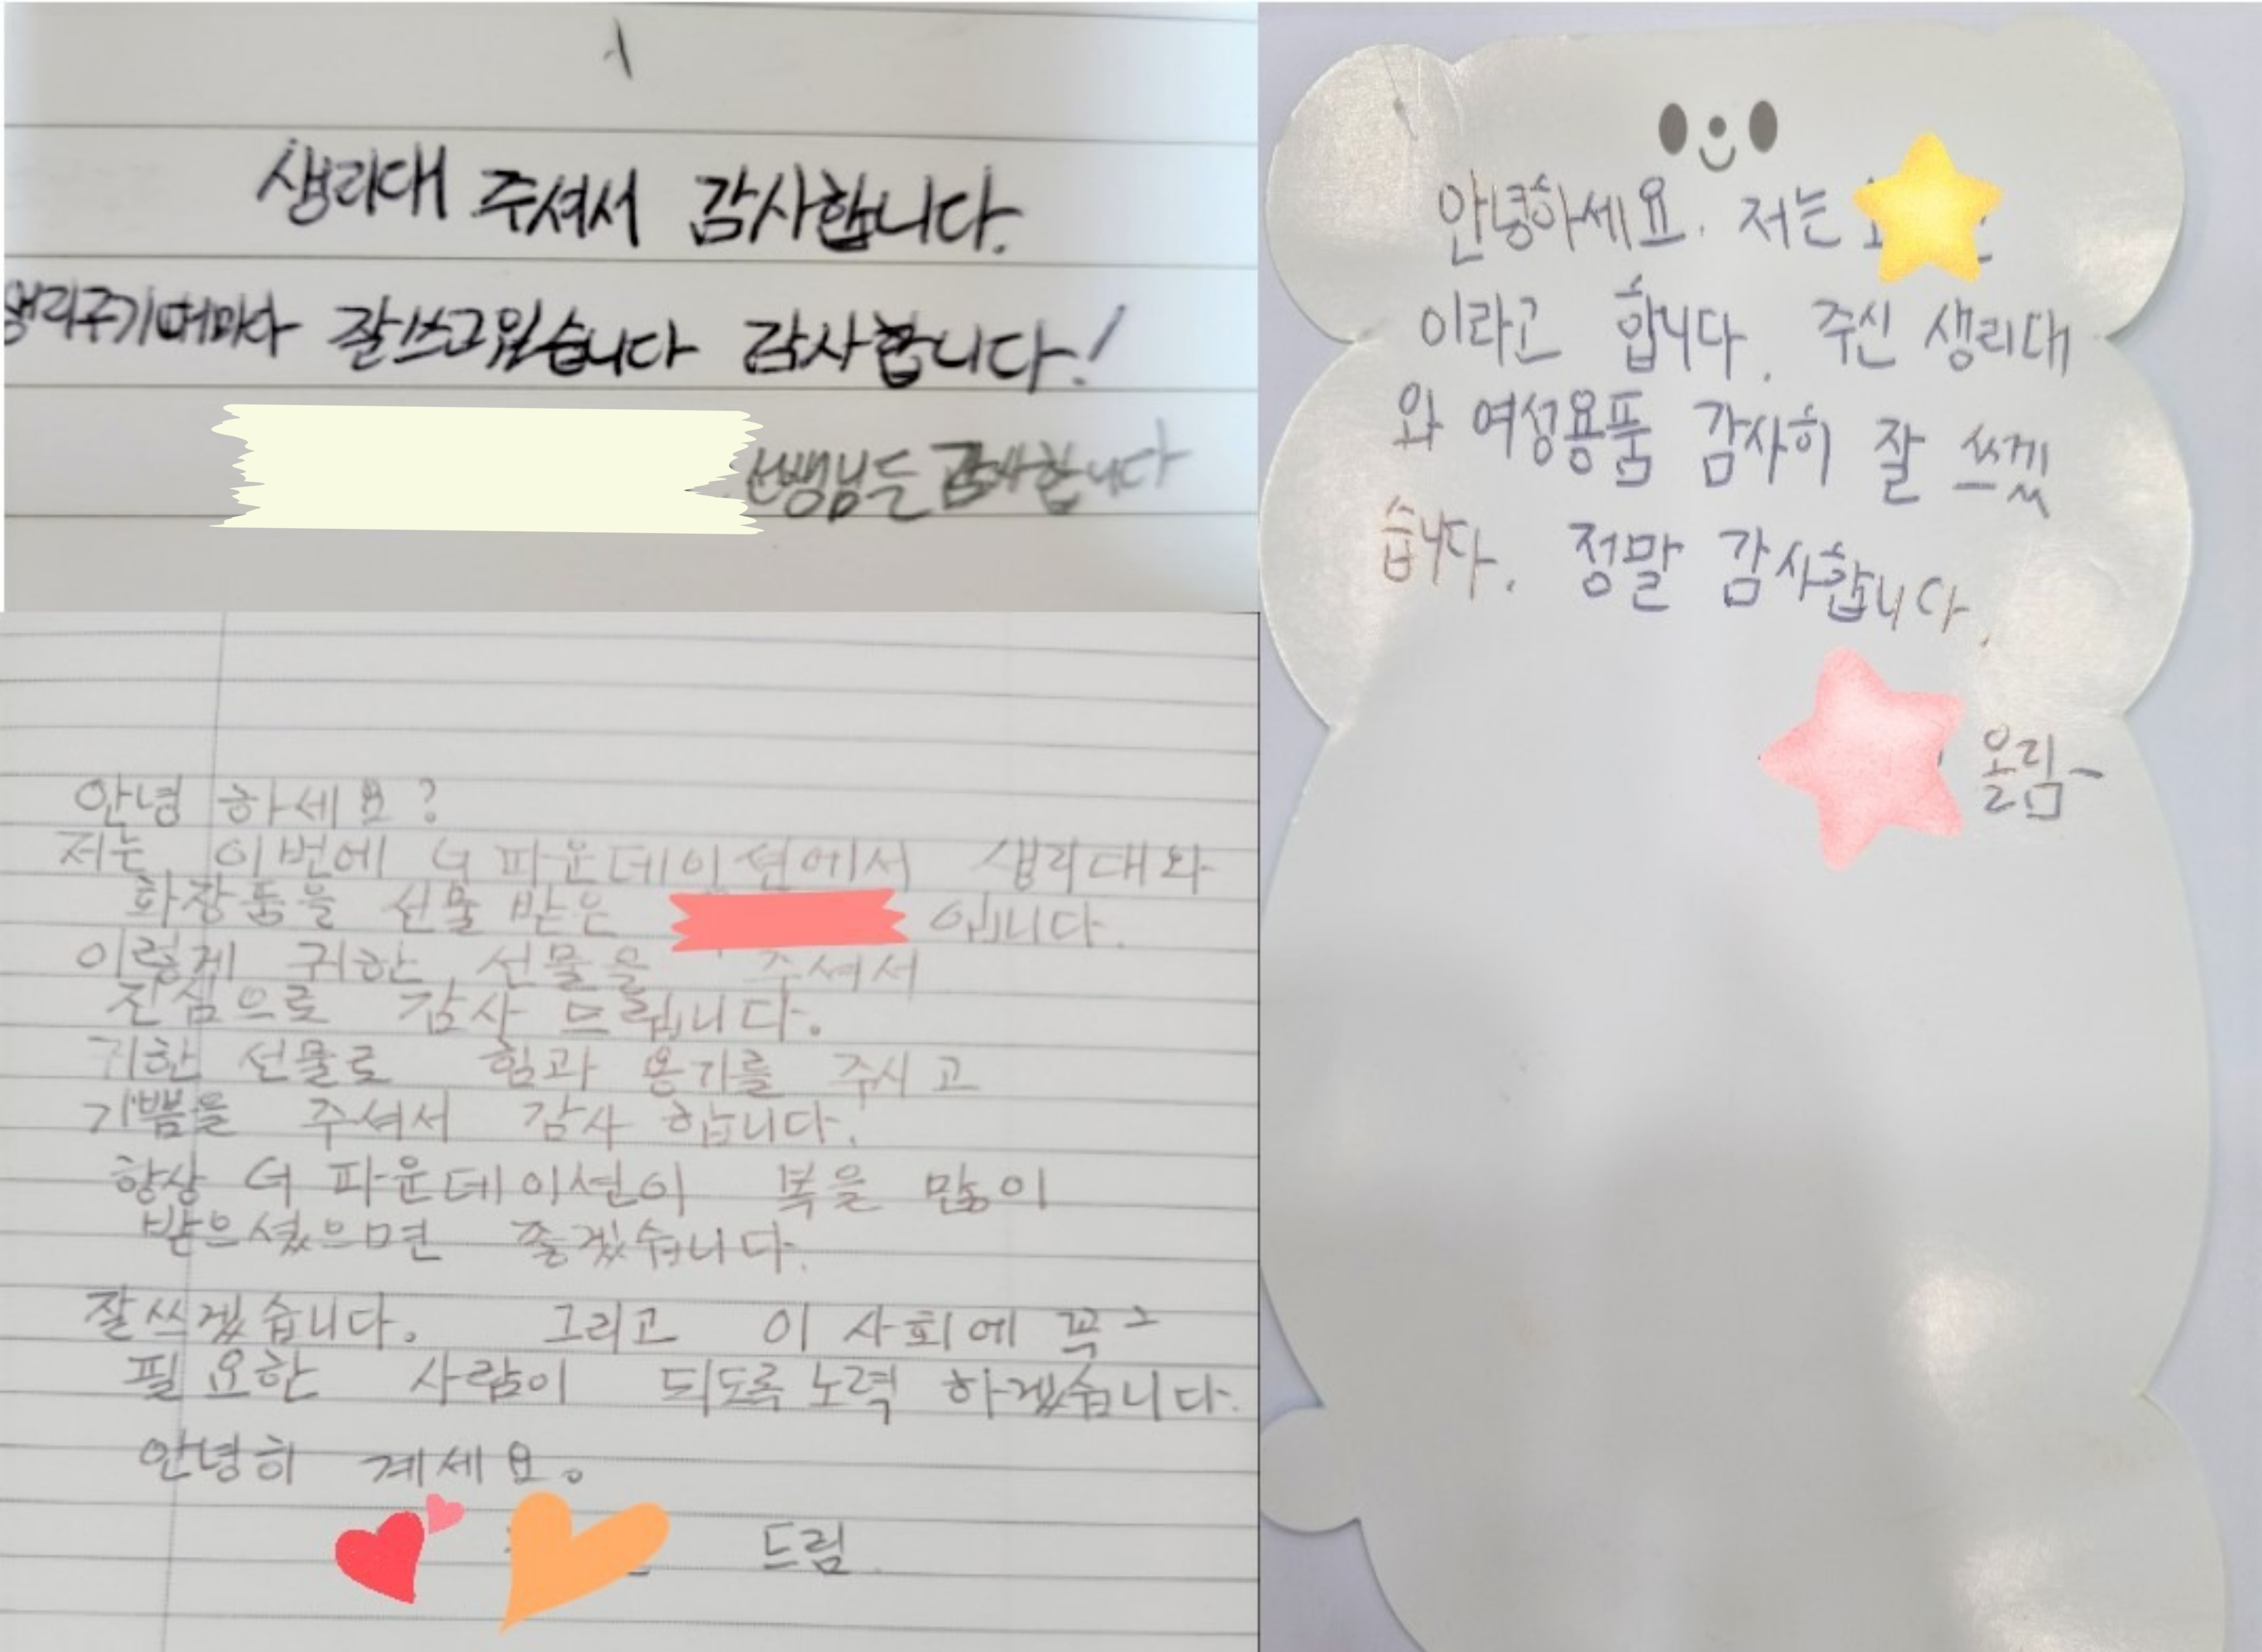 생리대 주셔서 감사합니다.
생리주기때마다 잘쓰고있습니다 감사합니다!
감사합니다
안녕하세요. 저는
이라고 합니다. 주신 생리대
와 여성용품 감사히 잘 쓰겠
습니다. 정말 감사합니다.
올림~
안녕 하세요?
저는 이번에 더 파운데이션에서 생리대와
화장품을 선물 받은 입니다.
이렇게 귀한 선물을 주셔서
진심으로 감사 드립니다.
귀한 선물로 힘과 용기를 주시고
기쁨을 주셔서 감사 합니다.
항상 더 파운데이션이 복을 많이
받으셨으면 좋겠습니다.
잘쓰겠습니다. 그리고 이 사회에 꼭
필요한 사람이 되도록 노력 하겠습니다.
안녕히 계세요.
드림